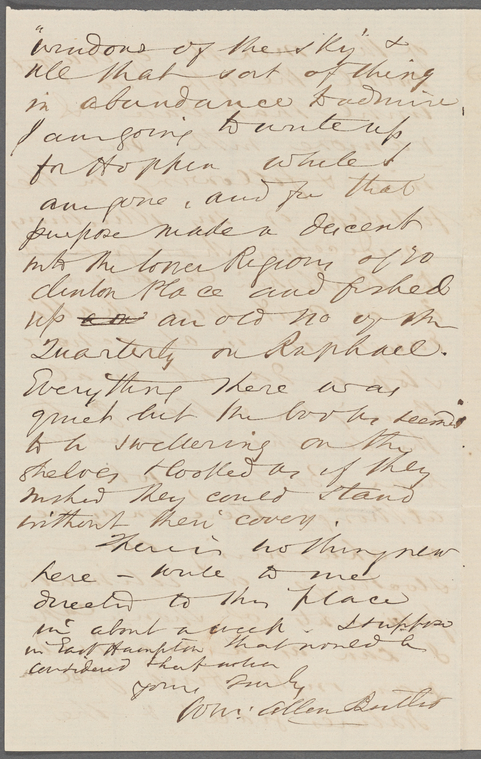 "windows of the sky" &
all that sort of thing
in abundance to admire,
I am going to write up
for Hoppin while I
am gone, and for that
purpose made a descent
into the lower Regions of 20
Clinton Place and fished
up an old No of the
Quarterly on Raphael.
Everything there was
quiet but the books seemed
to be sweltering on the
shelves & looked as if they
wished they could stand
without their covers.
There is nothing new
here – write to me
directed to this place
in about a week. I suppose
in East Hampton that would be
considered short notice
yours truly
Wm: Allen Butler